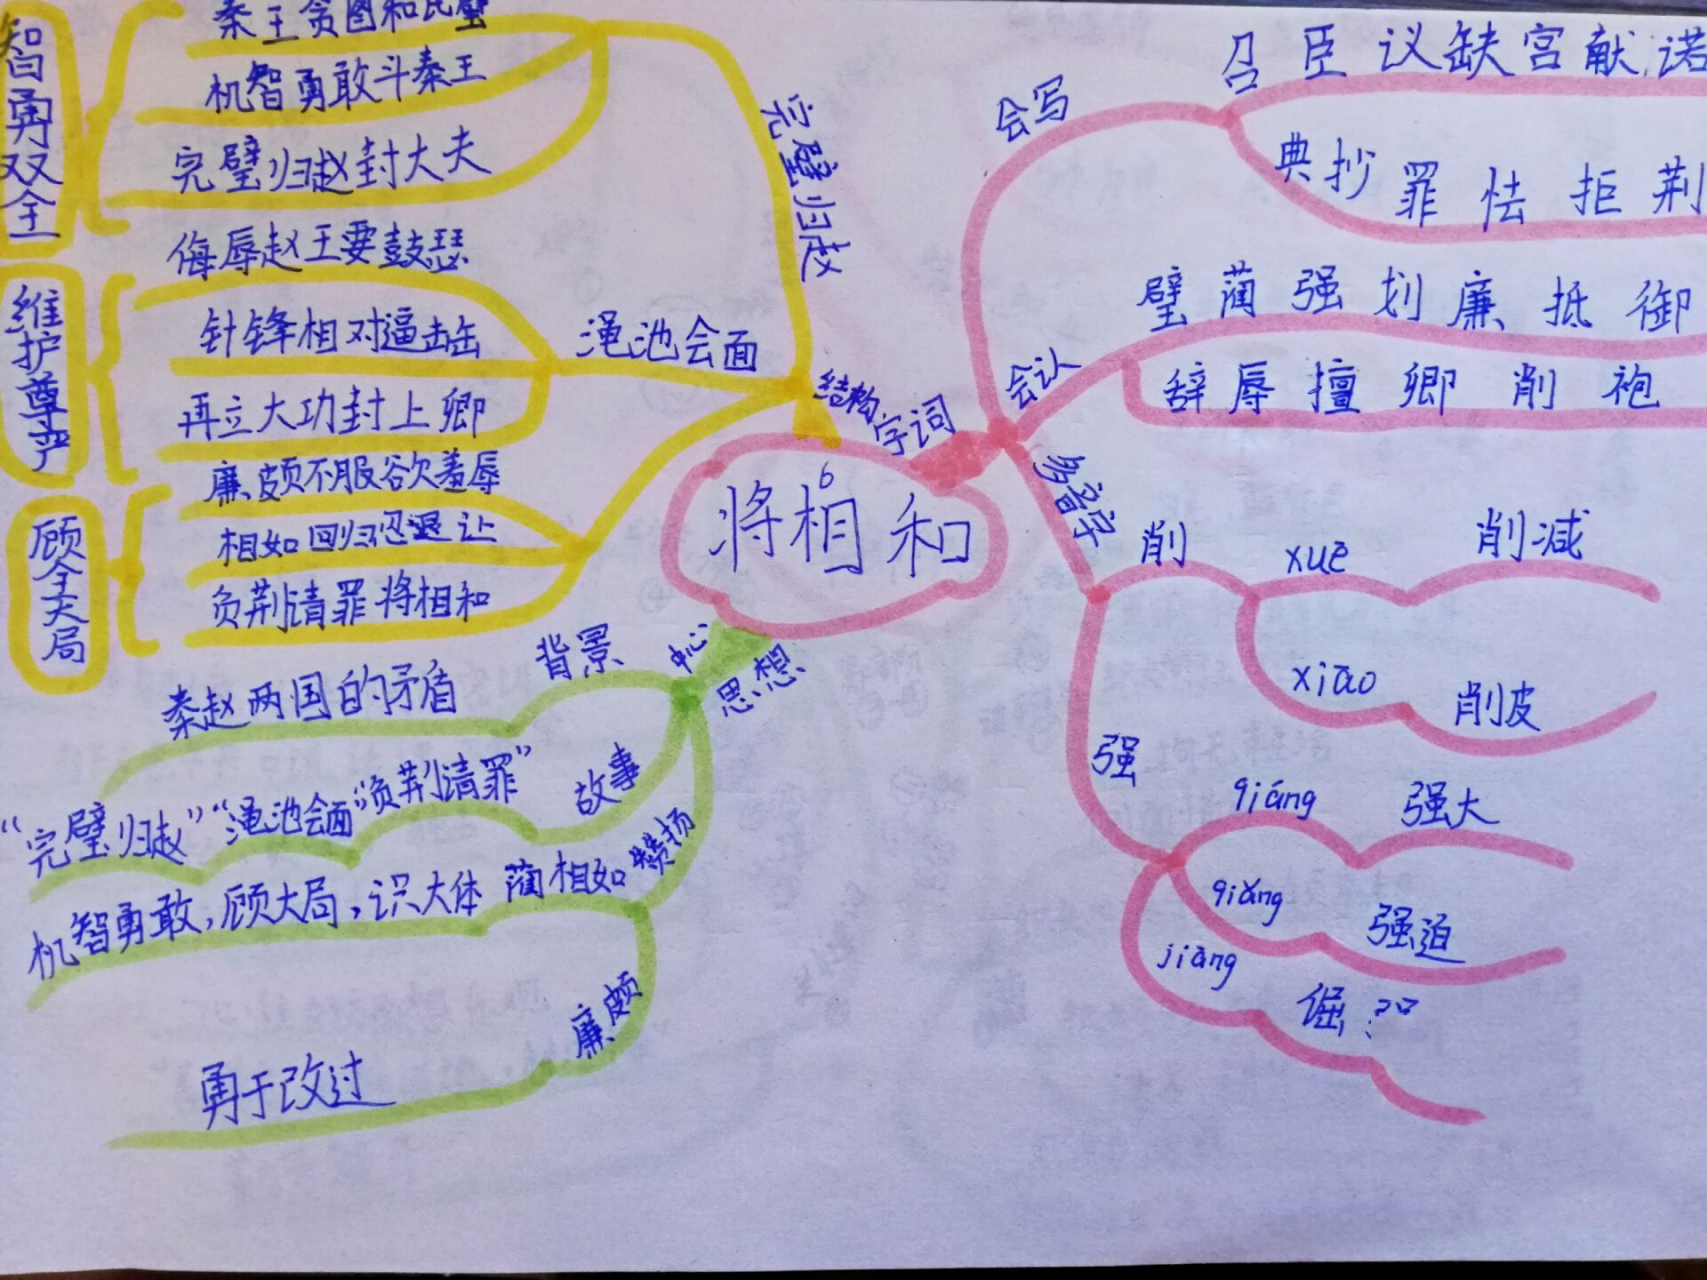 智勇双全
秦王贪图和氏璧
机智勇敢斗秦王
完璧归赵封大夫
完璧归赵
维护尊严
侮辱赵王要鼓瑟
针锋相对逼击缶
再立大功封上卿
渑池会面
顾全大局
廉颇不服欲羞辱
相如回归忍退让
负荆请罪将相和
结构
6
将相和
字词
会写
召臣议缺宫献诺
典抄罪怯拒荆
会认
璧蔺强划廉抵御
辞辱擅卿削袍
多音字
削
xuē
削减
xiāo
削皮
强
qiáng
强大
qiǎng
强迫
jiàng
倔
中心
思想
背景
秦赵两国的矛盾
故事
“完璧归赵”“渑池会面”“负荆请罪”
赞扬
蔺相如
机智勇敢,顾大局,识大体
廉颇
勇于改过